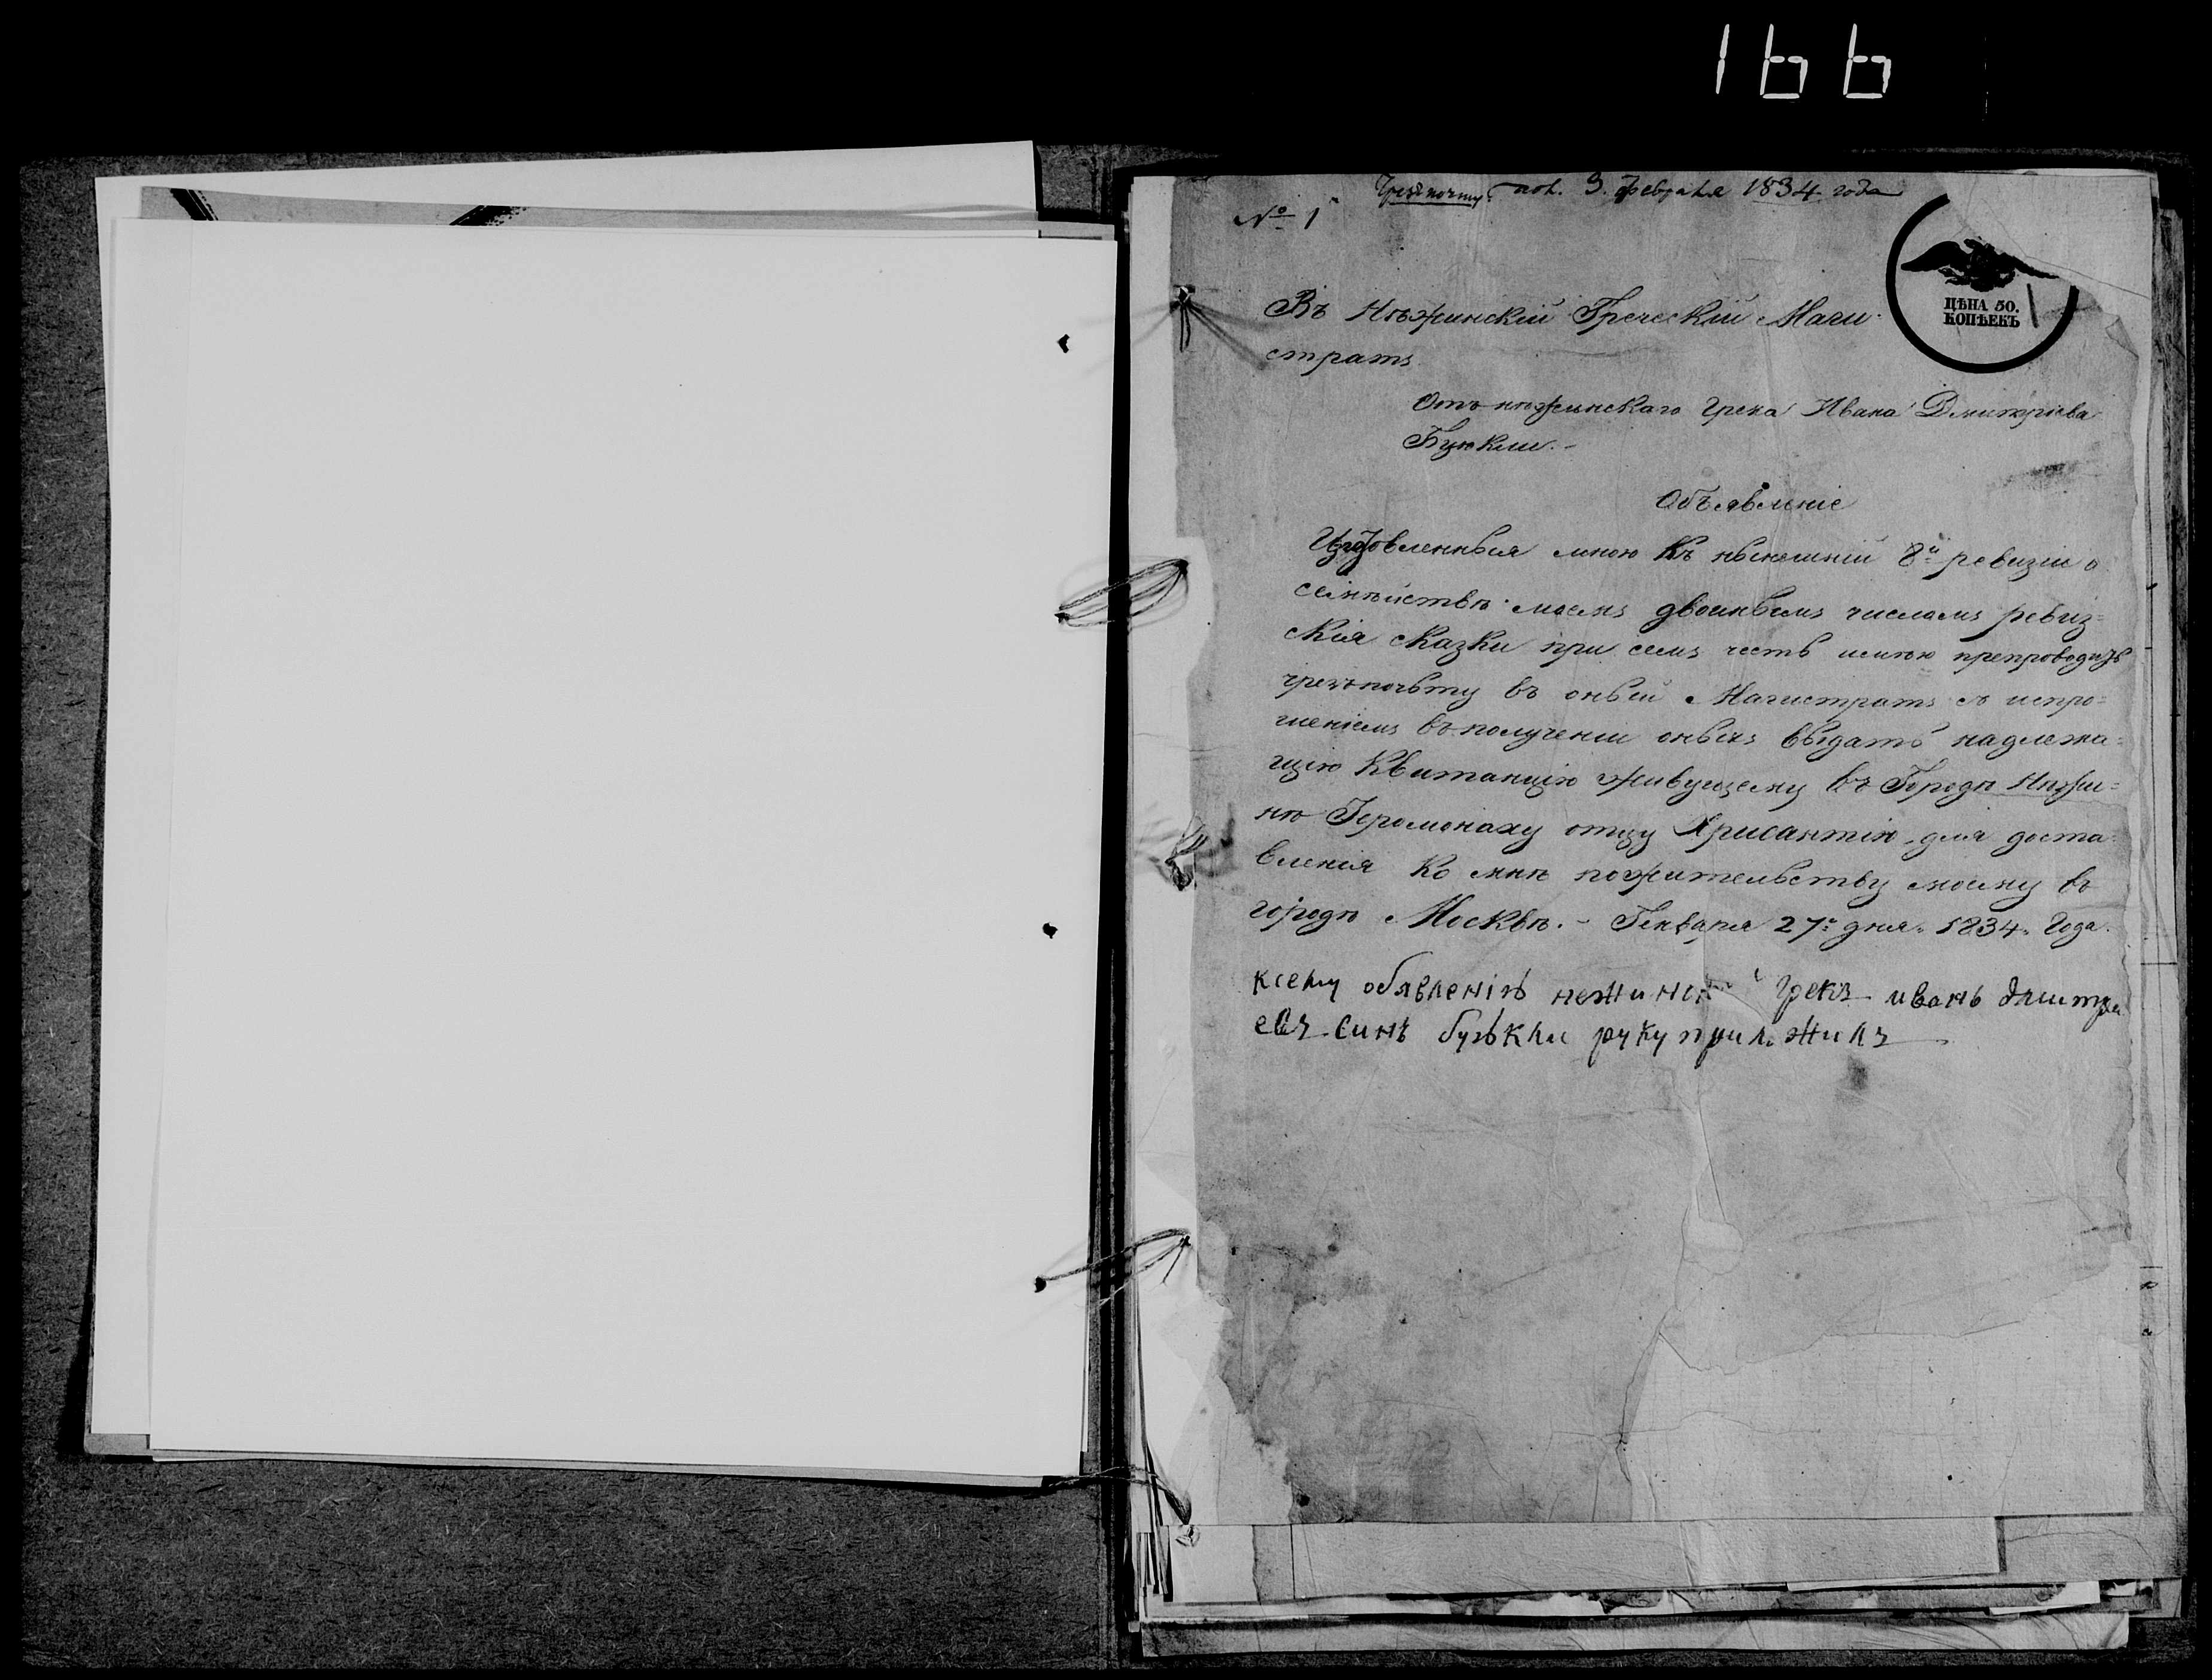 166
Чрезъ почту. пол. 3. февраля 1834 года
№ 1
ЦѢНА 50.
КОПѢЕКЪ
1
Въ Нѣжинскій Греческій Маги-
стратъ
Отъ нѣжинскаго Грека Ивана Дмитріева
Буюкли.-
Объявленіе
Изготовленныя мною Къ нынешній 8й ревизіи о
семѣйствѣ моемъ двоинымъ числомъ ревиз=
скія сказки при семъ честь имѣю препроводить
чрезъ почьту въ оный Магистратъ съ испро=
шеніемъ въ полученіи оныхъ выдать надлежа=
щію Квитанцію живущему въ Городѣ Нѣжи=
нѣ Іеромонаху отцу Хрисантію для доста=
вленія Ко мнѣ по жительству моему въ
городѣ Москвѣ.- Генваря 27го дня. 1834. Года.
ксему обявленію нежинской грекъ иванъ дмитри
евъ синъ буюкли руку приложилъ